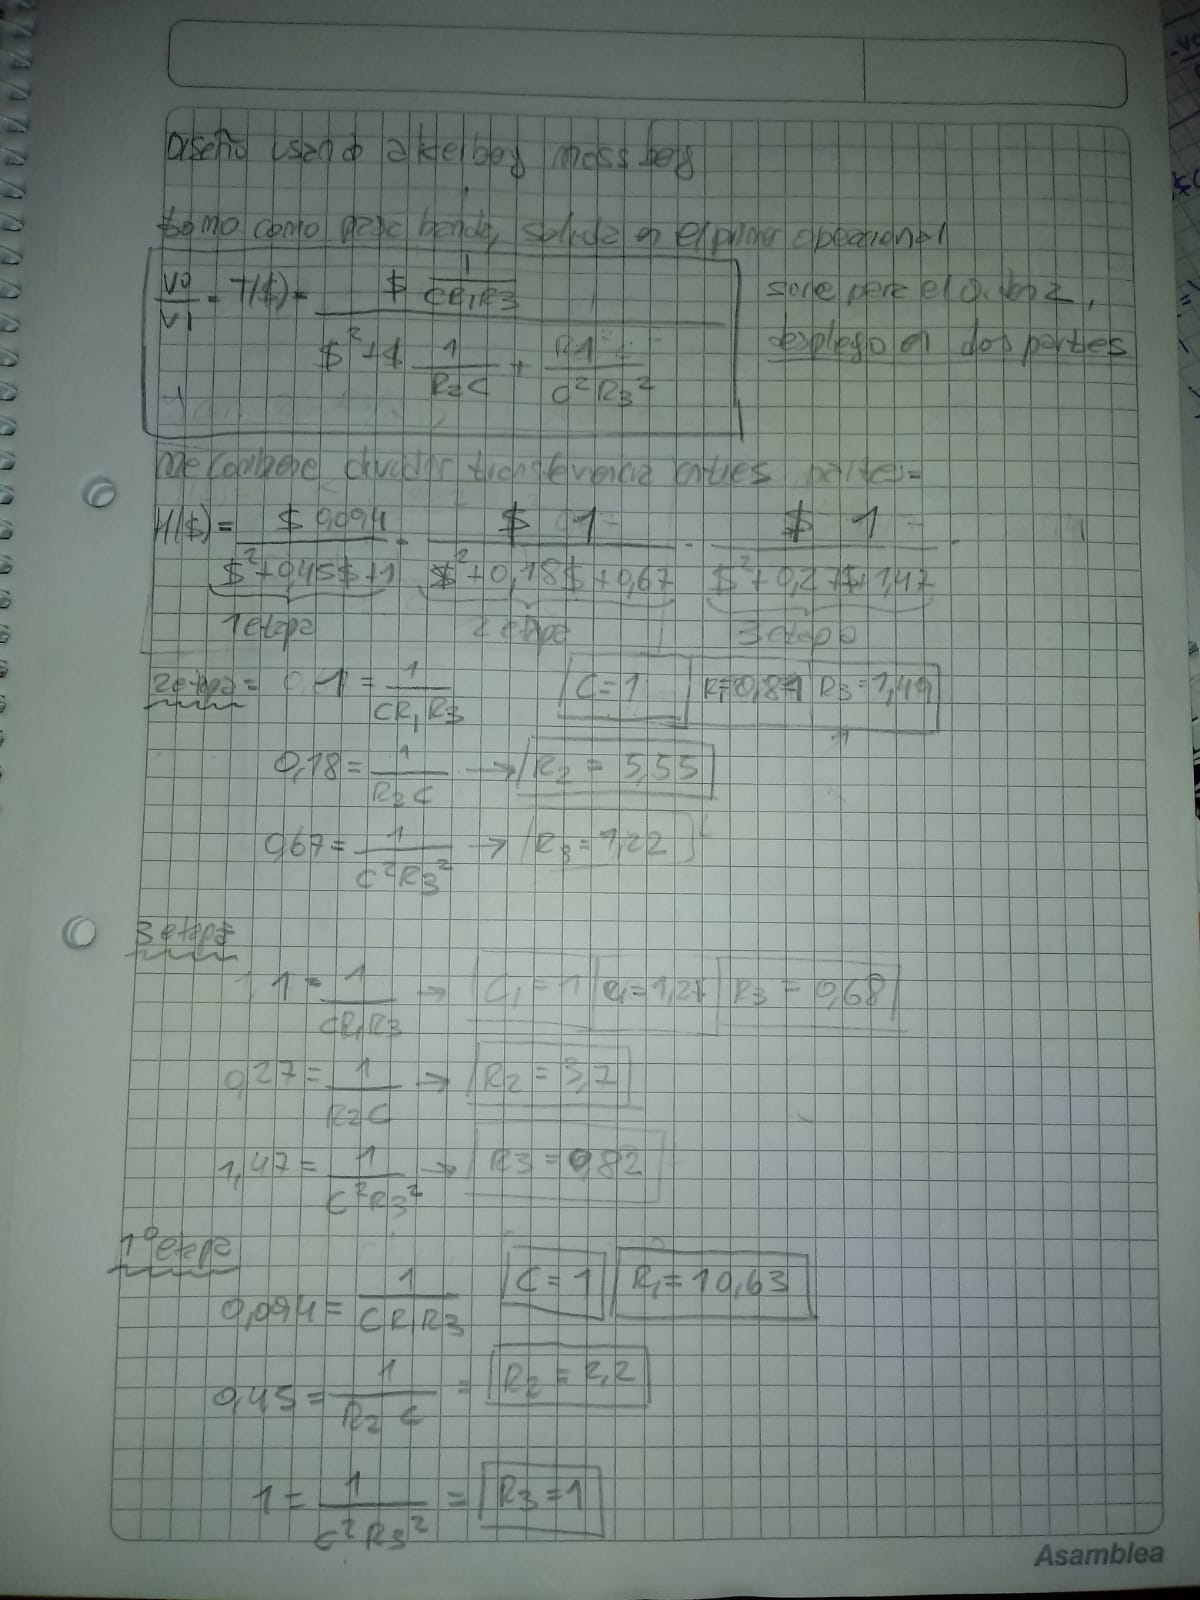 Diseño usando akelbey mossbey
tomo como pasa banda, salida en el primer operacional
V0/V1 = T($) = $ 1/CR1R3 / $² + $ 1/R2C + /C²R3²
sirve para el
desplego en dos partes
me conviene dividir transferencia en tres partes=
H($) = $ 0,094 / $²+0,45$+1 · $ 1 / $²+0,18$+0,67 · $ 1 / $²+0,27$+1,47
1 etapa 2 etapa 3 etapa
2 etapa = 1 = 1/CR1R3 C=1 R1=0,81 R3=1,49
0,18 = 1/R2C → R2 = 5,55
0,67 = 1/C²R3² → R3 = 1,22
3 etapa
1 = 1/CR1R3 → C1 = 1 =1,21 R3 = 0,68
0,27 = 1/R2C → R2 = 3,7
1,47 = 1/C²R3² → R3 = 0,82
1° etapa
0,094 = 1/CR1R3 C = 1 R1 = 10,63
0,45 = 1/R2 C = R2 = 2,2
1 = 1/C²R3² = R3 = 1
Asamblea